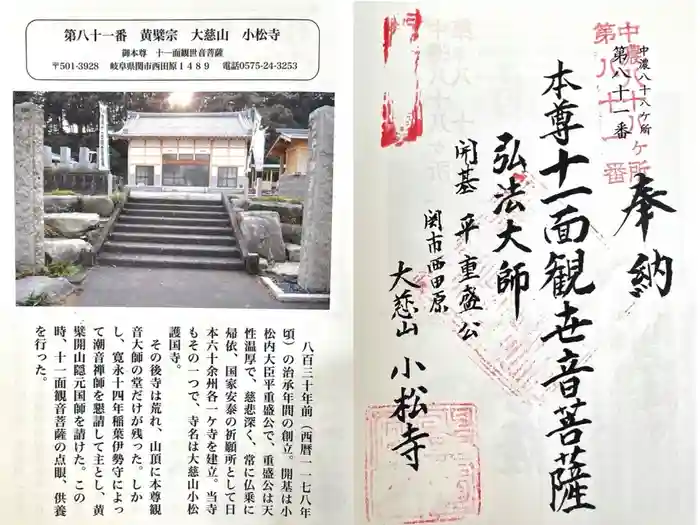 第八十一番　黄檗宗　大慈山　小松寺
御本尊　十一面観世音菩薩
〒501-3928　岐阜県関市西田原１４８９　電話0575-24-3253
八百三十年前（西暦一一七八年
頃）の治承年間の創立。開基は小
松内大臣平重盛公で、重盛公は天
性温厚で、慈悲深く、常に仏乗に
帰依、国家安泰の祈願所として日
本六十余州各一ケ寺を建立。当寺
もその一つで、寺名は大慈山小松
護国寺。
その後寺は荒れ、山頂に本尊観
音大師の堂だけが残った。しか
し、寛永十四年稲葉伊勢守によっ
て潮音禅師を懇請して主とし、黄
檗開山隠元国師を請けた。この
時、十一面観音菩薩の点眼、供養
を行った。
中濃八十八ケ所
第八十一番
中濃八十八ヶ所
第八十一番
奉納
本尊十一面観世音菩薩
弘法大師
開基　平重盛公
関市西田原
大慈山　小松寺